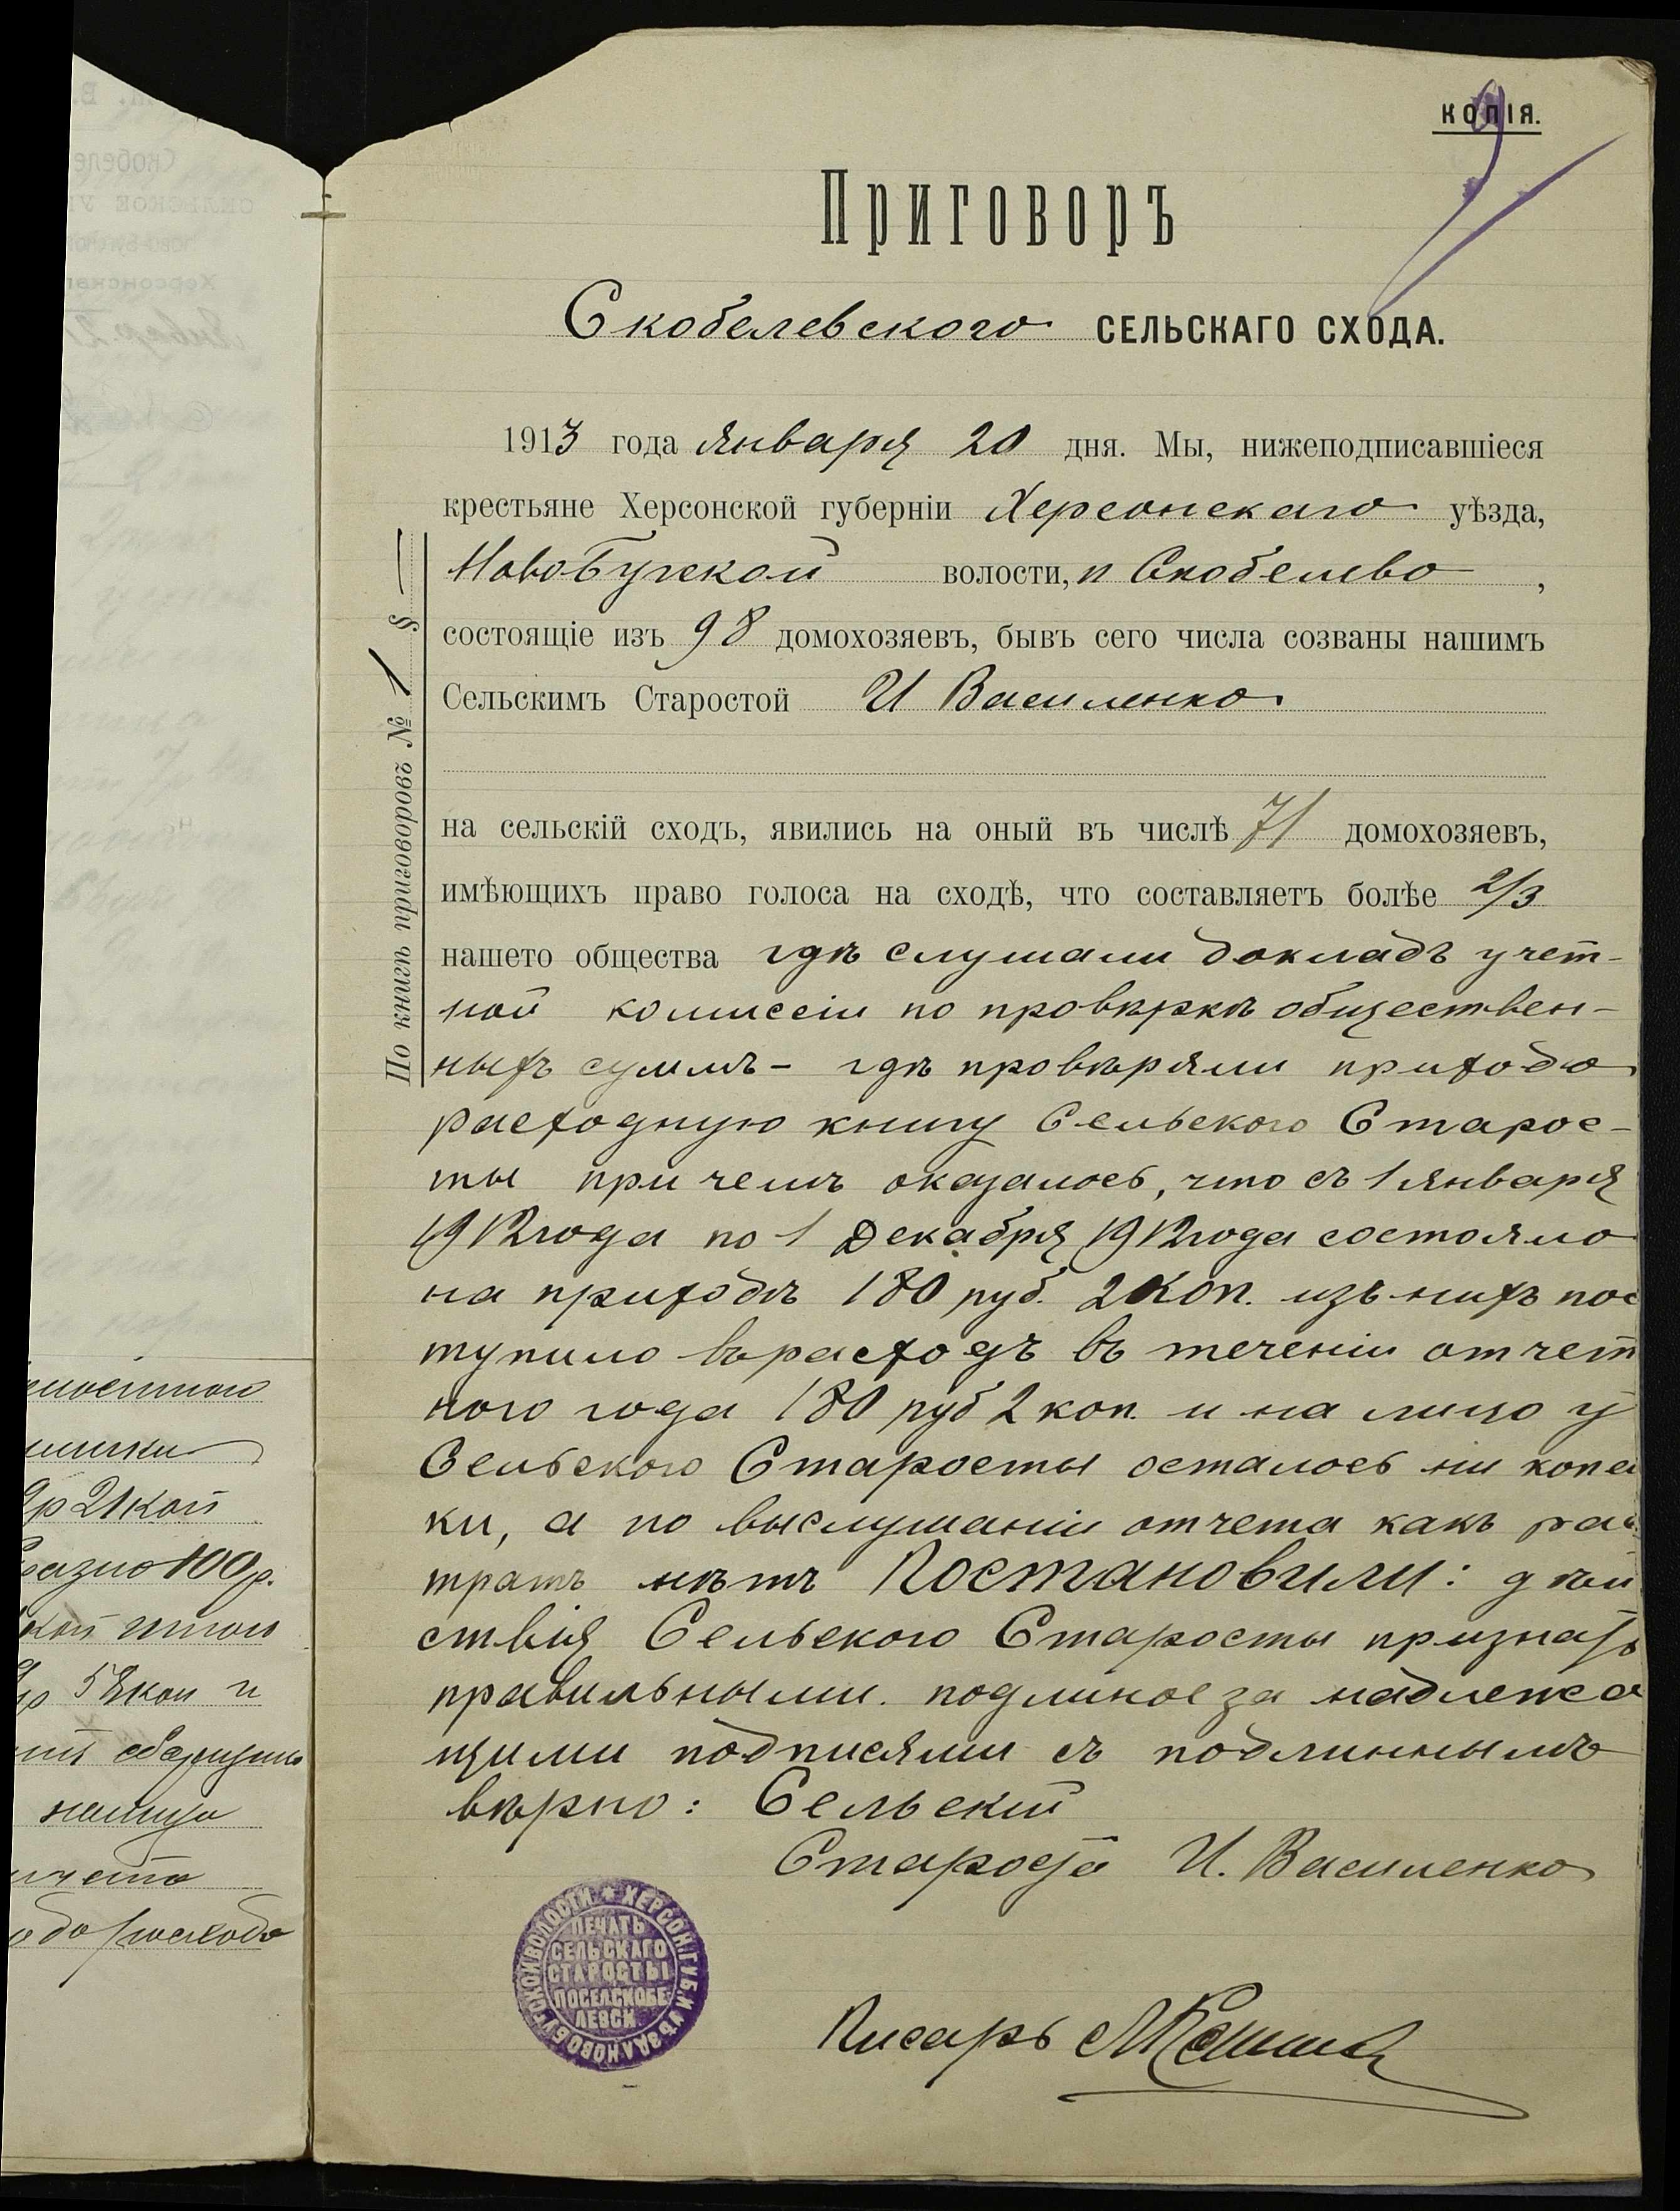 КОПІЯ.
9
Приговоръ
Скобелевского СЕЛЬСКАГО СХОДА.
1913 года Января 20 дня. Мы, нижеподписавшіеся
крестьяне Херсонской губерніи Херсонскаго уѣзда,
НовоБугской волости, п Скобелево ,
состоящіе изъ 98 домохозяевъ, бывъ сего числа созваны нашимъ
Сельскимъ Старостой И Василенко
на сельскій сходъ, явились на оный въ числѣ 71 домохозяевъ,
имѣющихъ право голоса на сходѣ, что составляетъ болѣе 2/3
нашето общества гдѣ слушали докладъ учет-
ной комиссіи по провѣркѣ обществен-
ныхъ суммъ - гдѣ провѣряли приходо
расходную книгу Сельского Старос-
ты при чемъ оказалось, что съ 1 Января
1912 года по 1 Декабря 1912 года состояло
на приходѣ 180 руб. 2 коп. изъ нихъ пос
тупило въ расходъ въ теченіи отчет
ного года 180 руб 2 коп. и на лицо у
Сельского Старосты осталось ни копей
ки, а по выслушаніи отчета какъ рас
тратъ нѣтъ Постановили: дѣй
ствія Сельского Старосты признать
правильными. подлиное за надлежа
щими подписями съ подлиннымъ
вѣрно: Сельскій
Староста И. Василенко
Писарь
По книгѣ приговоровъ № 1 § —
ХЕРСОН. ГУБ. И УѢЗДА НОВОБУГСКОЙ ВОЛОСТИ
ПЕЧАТЬ
СЕЛЬСКАГО
СТАРОСТЫ
ПОСЕЛ. СКОБЕ
ЛЕВСК
р 21 коп
100р.
58 коп и